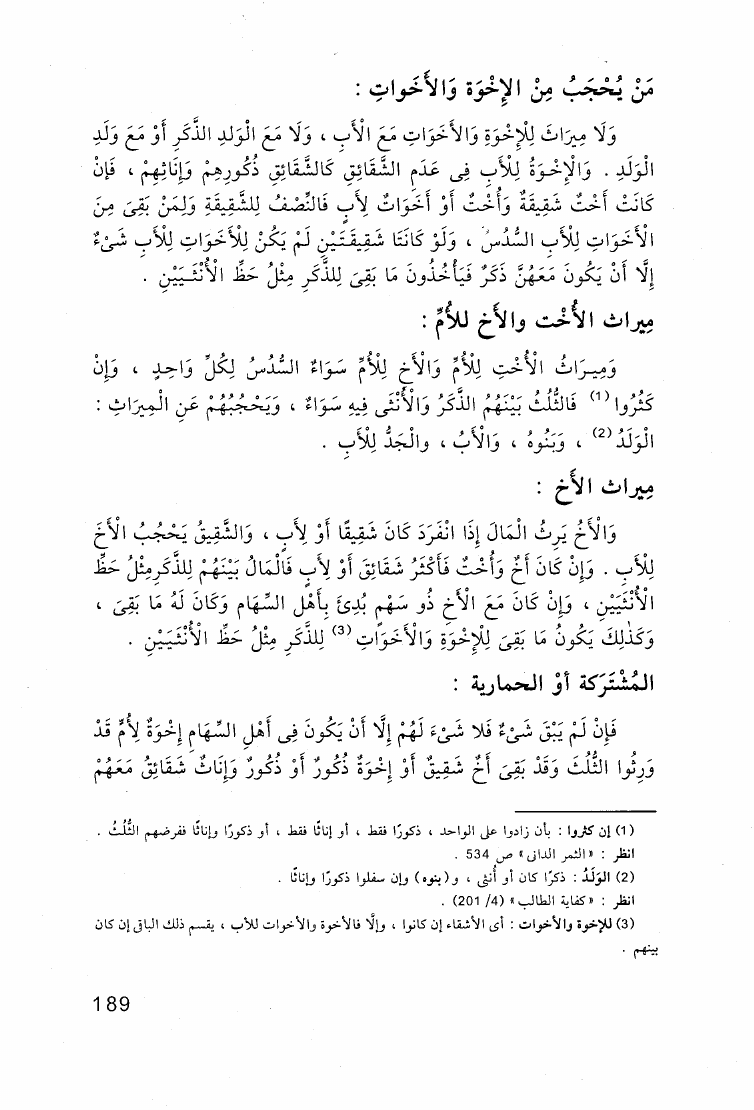 مَنْ يُحْجَبُ مِنَ الإِخْوَةِ وَالأَخَواتِ :
وَلَا مِيرَاثَ لِلْإِخْوَةِ وَالْأَخَوَاتِ مَعَ الْأَبِ ، وَلَا مَعَ الْوَلَدِ الذَّكَرِ أَوْ مَعَ وَلَدِ
الْوَلَدِ . وَالْإِخْوَةُ لِلْأَبِ فِى عَدَمِ الشَّقَائِقِ كَالشَّقَائِقِ ذُكُورِهِمْ وَإِنَاثِهِمْ ، فَإِنْ
كَانَتْ أُخْتٌ شَقِيقَةٌ وَأُخْتٌ أَوْ أَخَوَاتٌ لِأَبٍ فَالنِّصْفُ لِلشَّقِيقَةِ وَلِمَنْ بَقِىَ مِنَ
الْأَخَوَاتِ لِلْأَبِ السُّدُسُ ، وَلَوْ كَانَتَا شَقِيقَتَيْنِ لَمْ يَكُنْ لِلْأَخَوَاتِ لِلْأَبِ شَىْءٌ
إِلَّا أَنْ يَكُونَ مَعَهُنَّ ذَكَرٌ فَيَأْخُذُونَ مَا بَقِىَ لِلذَّكَرِ مِثْلُ حَظِّ الْأُنْثَيَيْنِ .
مِيراث الأُخْت والأخ للأُمِّ :
وَمِيرَاثُ الْأُخْتِ لِلْأُمِّ وَالْأَخِ لِلْأُمِّ سَوَاءٌ السُّدُسُ لِكُلِّ وَاحِدٍ ، وَإِنْ
كَثُرُوا (1) فَالثُّلُثُ بَيْنَهُمُ الذَّكَرُ وَالْأُنْثَى فِيهِ سَوَاءٌ ، وَيَحْجُبُهُمْ عَنِ الْمِيرَاثِ :
الْوَلَدُ (2) ، وَبَنُوهُ ، وَالْأَبُ ، والجَدُّ لِلْأَبِ .
مِيراث الأخ :
وَالْأَخُ يَرِثُ الْمَالَ إِذَا انْفَرَدَ كَانَ شَقِيقًا أَوْ لِأَبٍ ، وَالشَّقِيقُ يَحْجُبُ الْأَخَ
لِلْأَبِ . وَإِنْ كَانَ أَخٌ وَأُخْتٌ فَأَكْثَرُ شَقَائِقَ أَوْ لِأَبٍ فَالْمَالُ بَيْنَهُمْ لِلذَّكَرِ مِثْلُ حَظِّ
الْأُنْثَيَيْنِ ، وَإِنْ كَانَ مَعَ الْأَخِ ذُو سَهْمٍ بُدِئَ بِأَهْلِ السِّهَامِ وَكَانَ لَهُ مَا بَقِىَ ،
وَكَذٰلِكَ يَكُونُ مَا بَقِىَ لِلْإِخْوَةِ وَالْأَخَوَاتِ (3) لِلذَّكَرِ مِثْلُ حَظِّ الْأُنْثَيَيْنِ .
المُشْتَرَكة أوْ الحمارية :
فَإِنْ لَمْ يَبْقَ شَىْءٌ فَلا شَىْءَ لَهُمْ إِلَّا أَنْ يَكُونَ فِى أَهْلِ السِّهَامِ إِخْوَةٌ لِأُمٍّ قَدْ
وَرِثُوا الثُّلُثَ وَقَدْ بَقِىَ أَخٌ شَقِيقٌ أَوْ إِخْوَةٌ ذُكُورٌ أَوْ ذُكُورٌ وَإِنَاثٌ شَقَائِقُ مَعَهُمْ
(1) إن كثروا : بأن زادوا على الواحد ، ذكورًا فقط ، أو إناثًا فقط ، أو ذكورًا وإناثًا ففرضهم الثُّلُثُ .
انظر : « الثمر الدانى » ص 534 .
(2) الوَلَدُ : ذكرًا كان أو أُنثى ، و (بنوه) وإن سفلوا ذكورًا وإناثًا .
انظر : « كفاية الطالب » (4/ 201) .
(3) للإخوة والأخوات : أى الأشقاء إن كانوا ، وإلّا فالأخوة والأخوات للأب ، يقسم ذلك الباقى إن كان
بينهم .
189